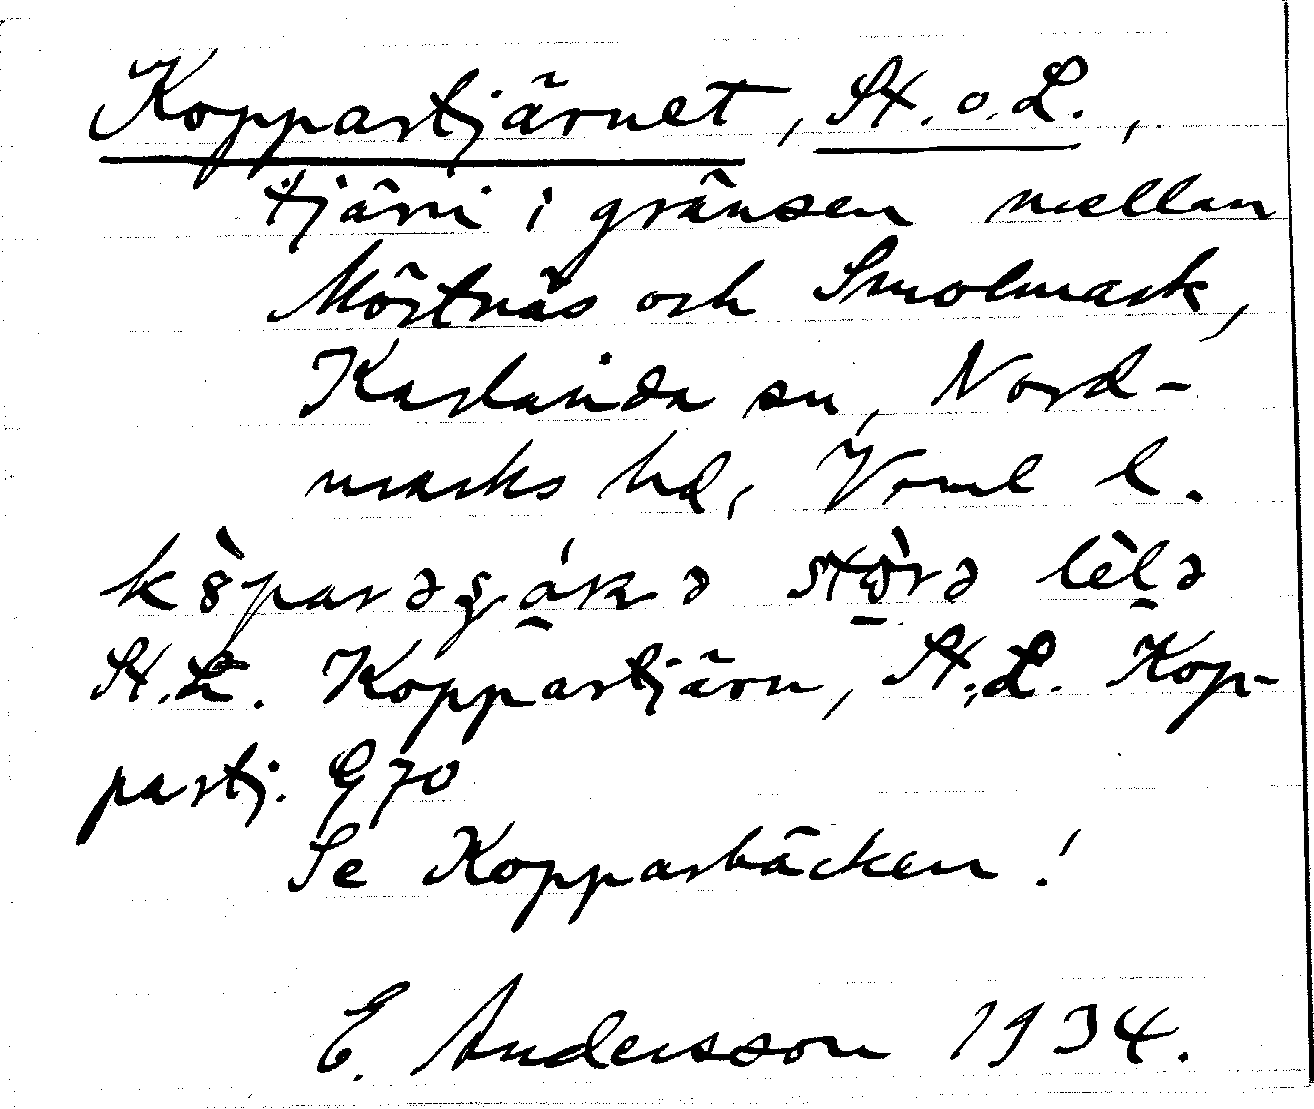 Koppartjärnet, St. o. L.,
tjärn i gränsen mellan
Mörtnäs och Smolmark,
Karlanda sn, Nord-
marks hd, Vrml l.
St. L. Koppartjärn, St. L. Kop-
partj. G 70
Se Kopparbäcken!
E. Andersson 1934.